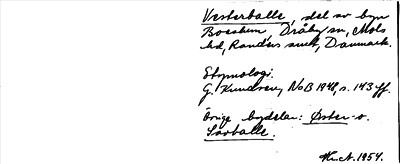 Vesterballe, del av byn
Boeslum, Dråby sn, Mols
hd, Randers amt, Danmark.
Etymologi.
G. Knudsen, NoB 1948, s. 143 ff.
Övriga bydelar: Øster- o.
Sovballe.
1954.